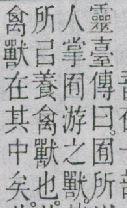 靈臺傳曰囿所
人掌囿游之獸。
所㠯養禽獸也。
禽獸在其中矣。